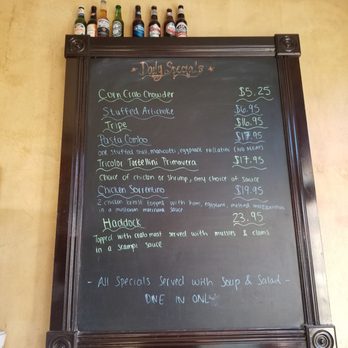 Daily Specials
Corn Crab Chowder $5.25
Stuffed Artichoke $16.95
Tripe $16.95
Pasta Combo $17.95
one stuffed shell, manicotti, eggplant rollatini (NO MEAT)
Tricolor Tortellini Primavera $17.95
choice of chicken or shrimp, any choice of sauce
Chicken Sorrentino $19.95
2 chicken breast topped with ham, eggplant, melted mozzarella
in a mushroom marinara sauce
Haddock 23.95
Topped with crabmeat served with mussels & clams
in a scampi sauce
- All Specials Served with Soup & Salad -
DINE IN ONLY